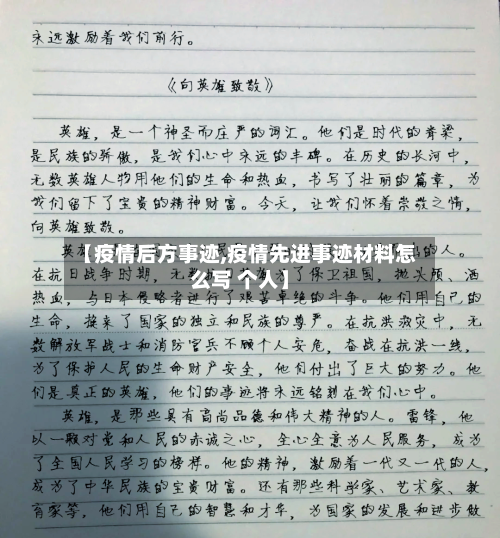 永远激励着我们前行。
《向英雄致敬》
英雄,是一个神圣而庄严的词汇。他们是时代的脊梁,
是民族的骄傲,是我们心中永远的丰碑。在历史的长河中,
无数英雄人物用他们的生命和热血,书写了壮丽的篇章,为
我们留下了宝贵的精神财富。今天,让我们怀着崇敬之情,
向英雄致敬。
英雄
的人。
【疫情后方事迹,疫情先进事迹材料怎
么写 个人】
在抗日战争时期,无数
了保卫祖国,抛头颅、洒
热血,与日本侵略者进行了艰苦卓绝的斗争。他们用自己的
生命,换来了国家的独立和民族的尊严。在抗洪救灾中,无
数解放军战士和消防官兵不顾个人安危,奋战在抗洪一线,
为了保护人民的生命财产安全,他们付出了巨大的努力。他
们是真正的英雄,他们的事迹将永远铭刻在我们心中。
英雄,是那些具有高尚品德和伟大精神的人。雷锋,他
以一颗对党和人民的赤诚之心,全心全意为人民服务,成为
了全国人民学习的榜样。他的精神,激励着一代又一代的人,
成为了中华民族的宝贵财富。还有那些科学家、艺术家、教
育家等,他们用自己的智慧和才华,为国家的发展和进步做